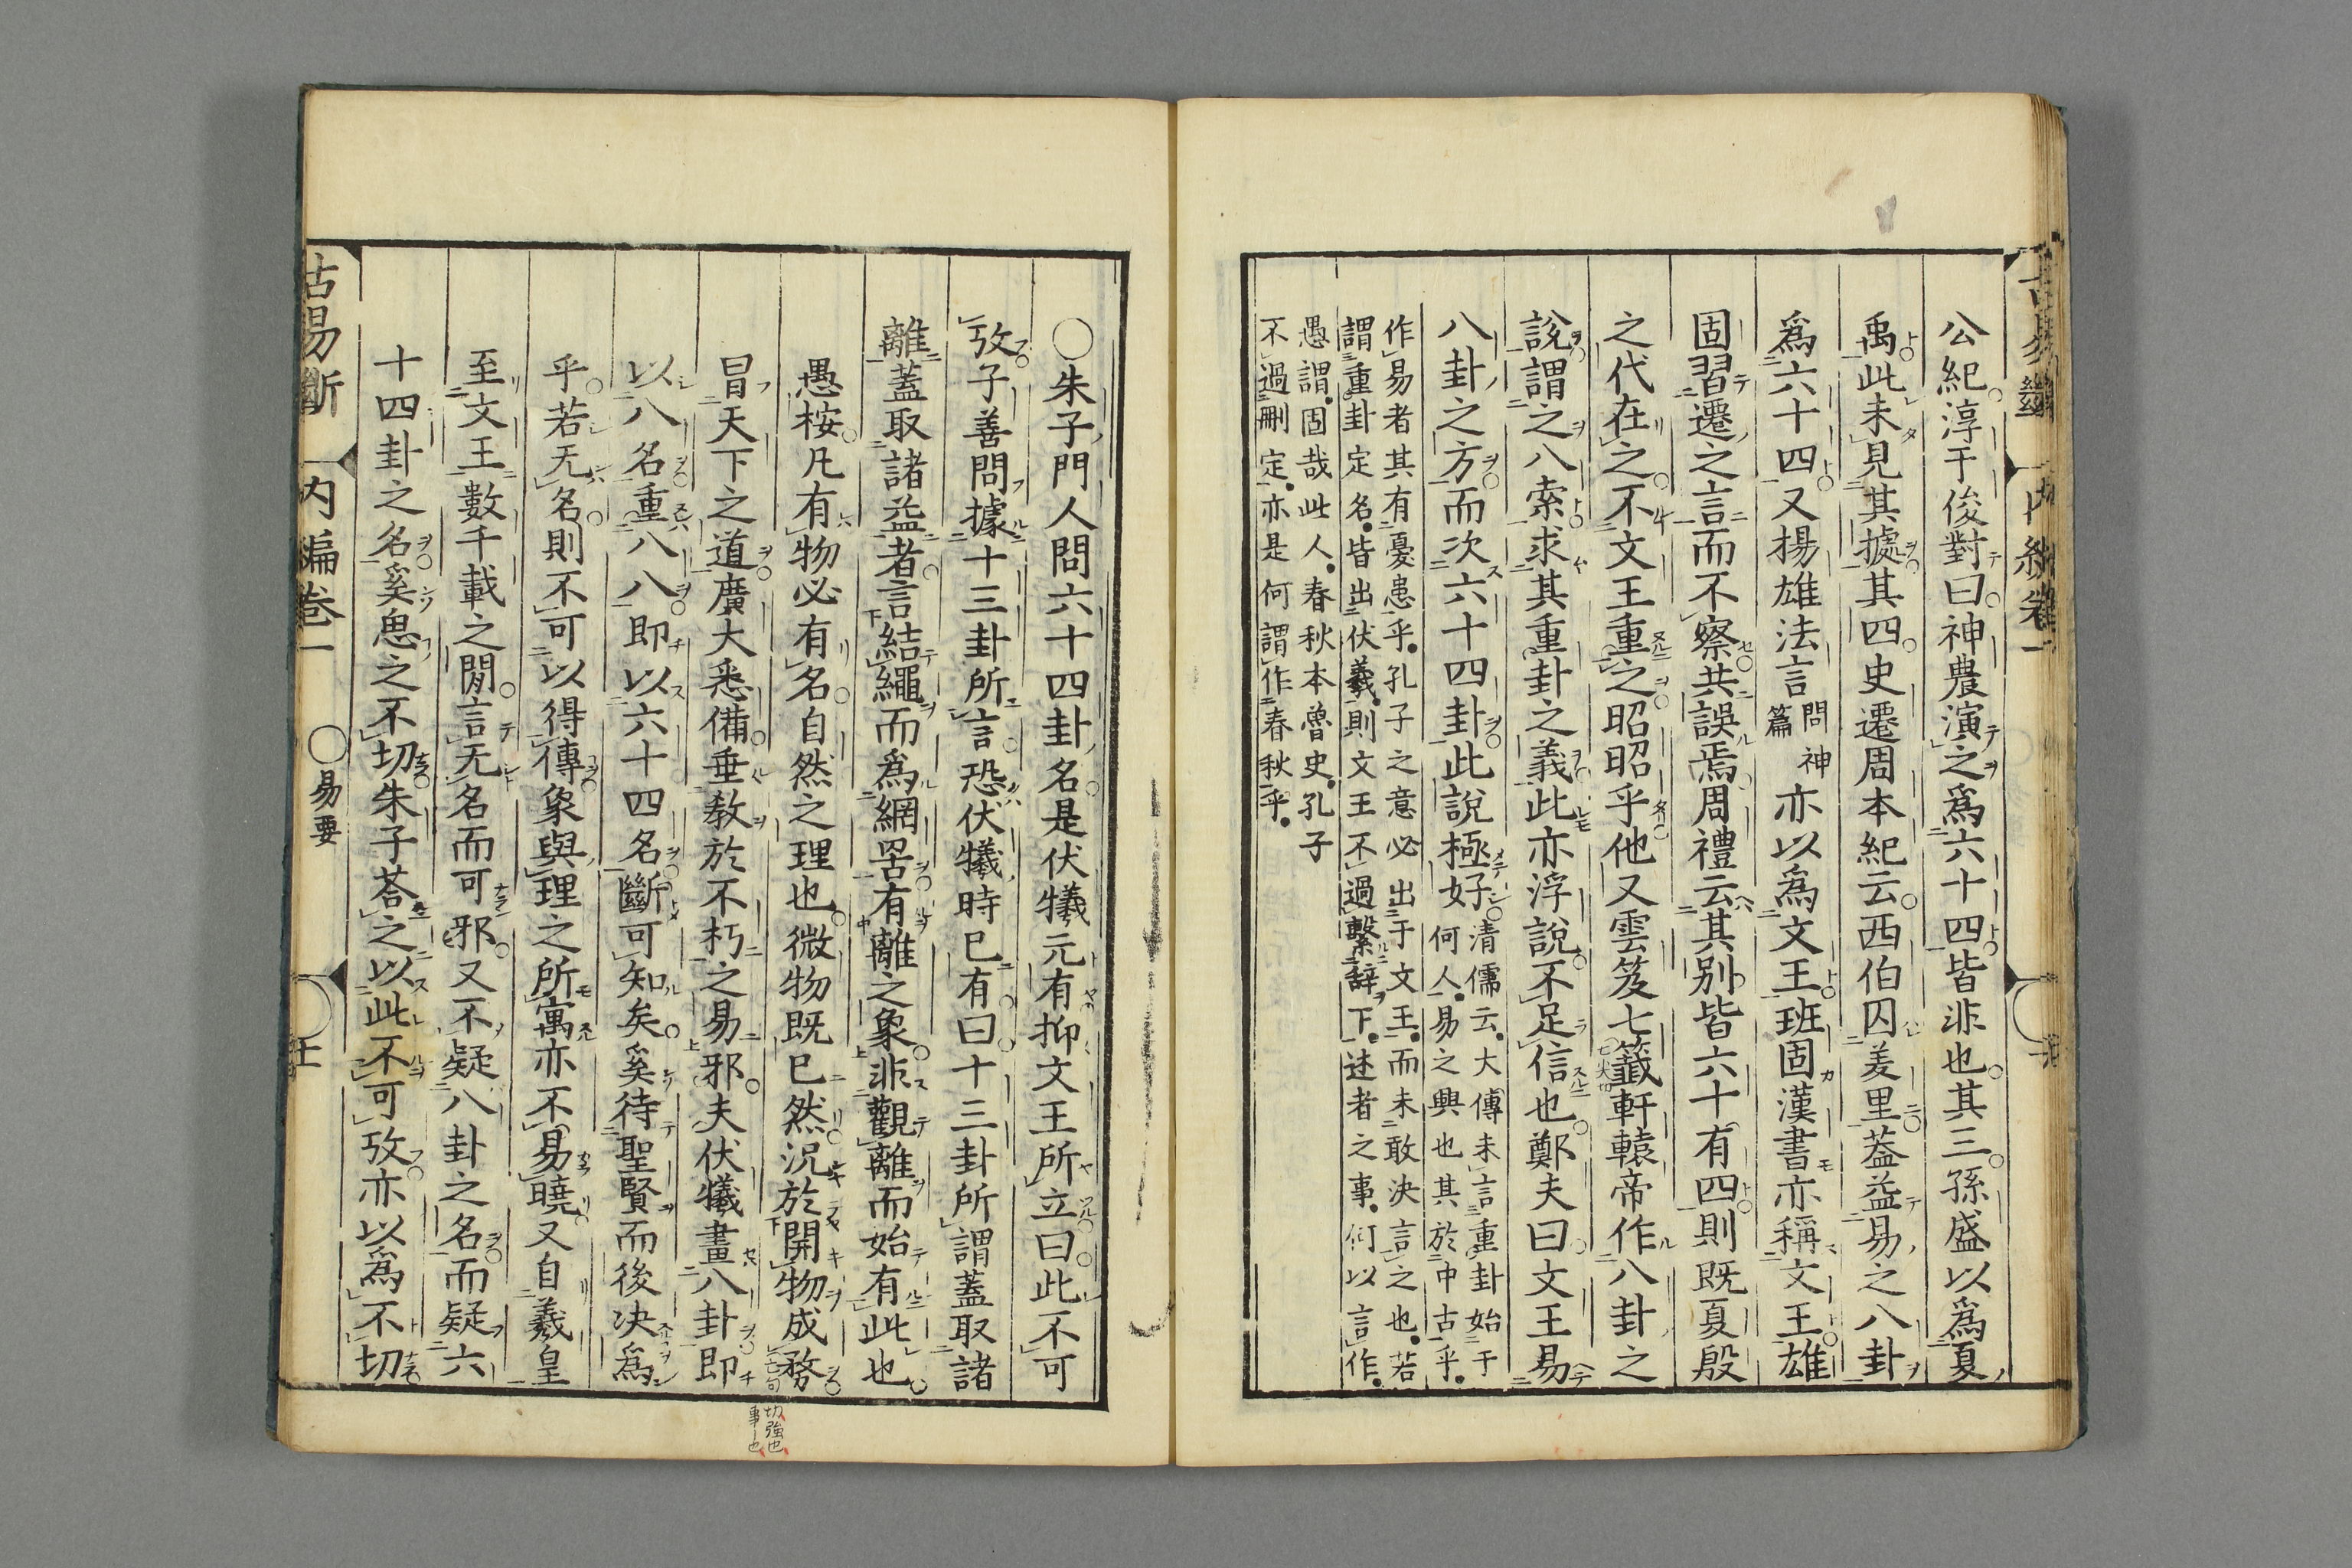 公紀淳于俊對曰神農演之爲六十四皆非也其三孫盛以爲夏
禹此未見其據其四史遷周本紀云西伯囚羑里蓋益易之八卦
爲六十四又揚雄法言問神篇亦以爲文王班固漢書亦稱文王雄
固習遷之言而不察共誤焉周禮云其別皆六十有四則既夏殷
之代在之不文王重之昭昭乎他又雲笈七籤軒轅帝作八卦之
說謂之八索求其重卦之義此亦浮說不足信也鄭夫曰文王易
八卦之方而次六十四卦此說極好清儒云大傳未言重卦始于
何人易之興也其於中古乎
作易者其有憂患乎孔子之意必出于文王而未敢決言之也若
謂重卦定名皆出伏羲則文王不過繫辭下述者之事何以言作
愚謂固哉此人春秋本魯史孔子
不過刪定亦是何謂作春秋乎
○朱子門人問六十四卦名是伏犧元有抑文王所立曰此不可
攷子善問據十三卦所言恐伏犧時已有曰十三卦所謂蓋取諸
離蓋取諸益者言結繩而爲網罟有離之象非觀離而始有此也
愚桉凡有物必有名自然之理也微物既已然況於開物成務
冒天下之道廣大悉備垂教於不朽之易邪夫伏犧畫八卦即
以八名重八八即以六十四名斷可知矣奚待聖賢而後決爲
乎若无名則不可以得傳象與理之所寓亦不易曉又自羲皇
至文王數千載之間言无名而可邪又不疑八卦之名而疑六
十四卦之名奚思之不切朱子荅之以此不可攷亦以爲不切
古易斷 內編卷一 ○易要